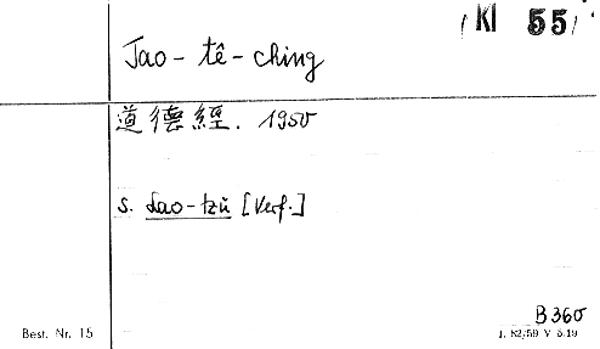 Kl 55
Tao-tê-ching
道德經. 1950
s. Lao-tzŭ [Verf.]
B 360
Best. Nr. 15